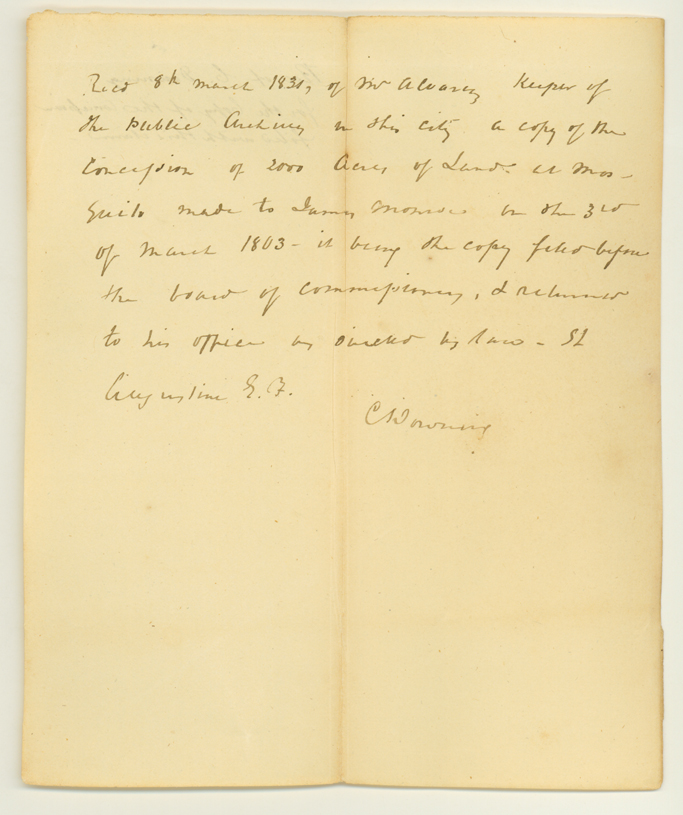 Recd 8th March 1831, of Mr Alvarez Keeper of
the public Archives in this City a copy of the
Concession of 2000 Acres of Land at Mos-
quito made to James on the 3rd
of March 1803 - it being the copy filed before
the board of Commissioners, & returned
to his office as directed by law - St
Augustine E. F.
C Downing